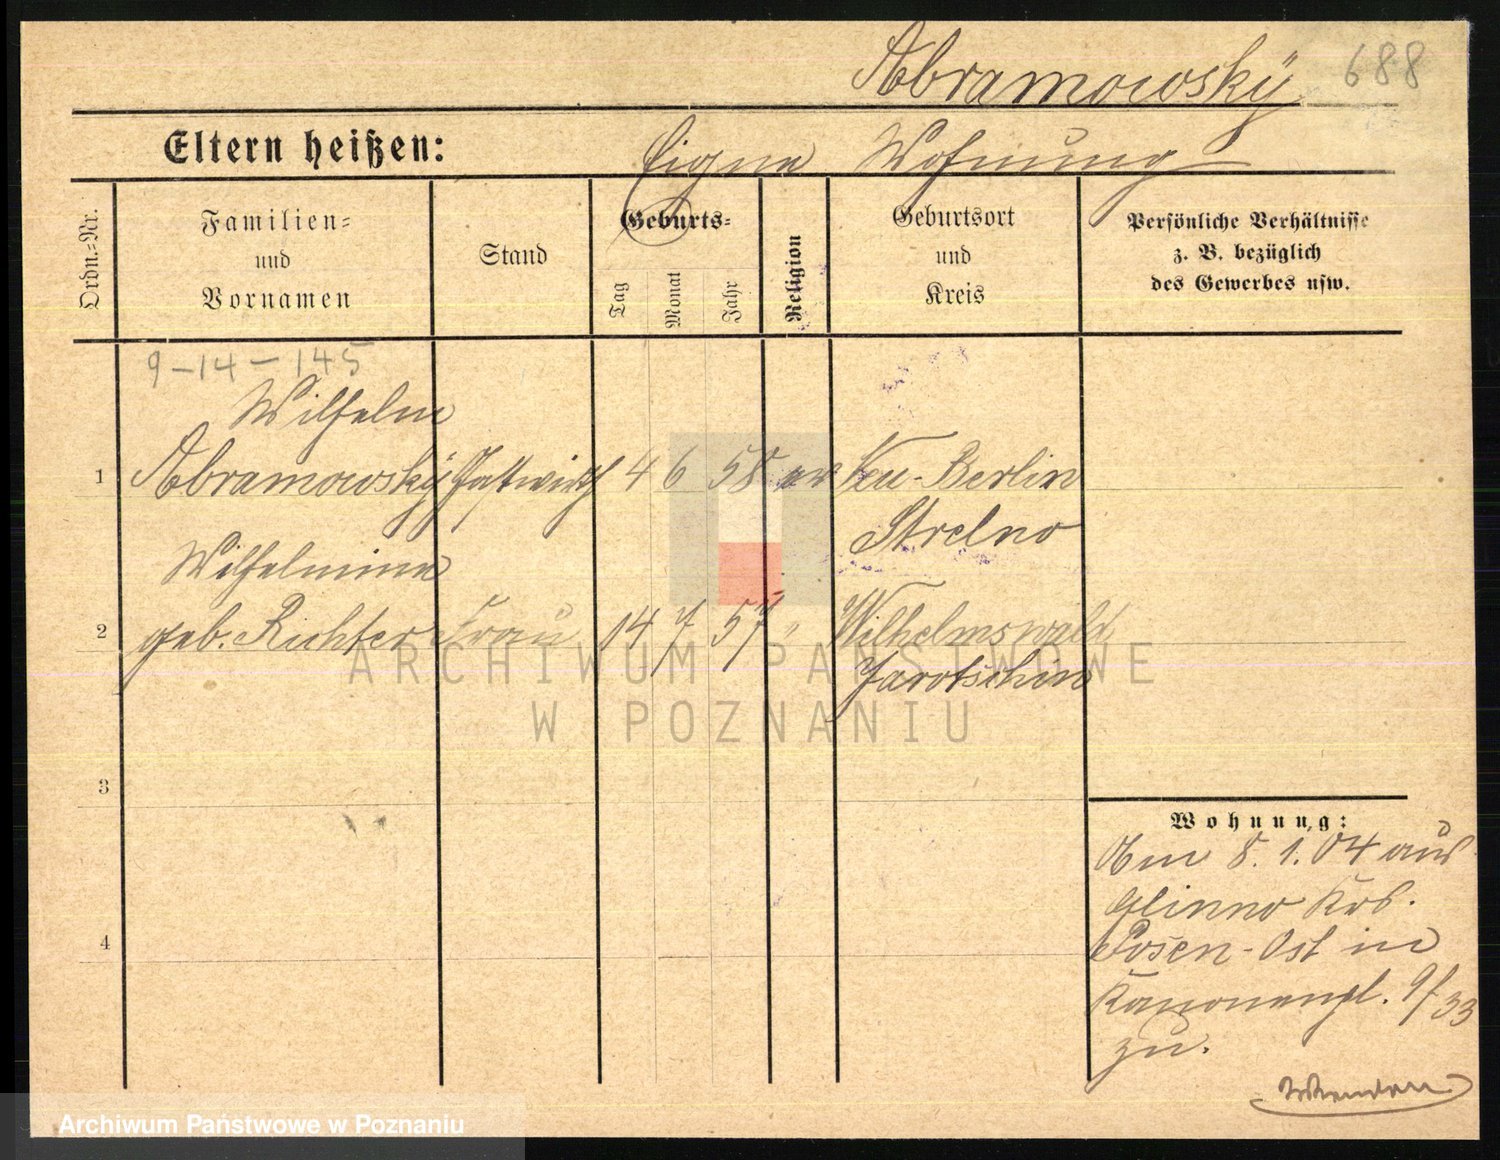 Abramowsky 688
Eltern heißen: Eigne Wohnung
Ordn.=Nr.
Familien=
und
Vornamen
Stand
Geburts=
Tag
Monat
Jahr
Religion
Geburtsort
und
Kreis
Persönliche Verhältnisse
z. B. bezüglich
des Gewerbes usw.
9-14-145
Wilhelm
1 Abramowsky Gastwirth 4 6 58 ev Neu-Berlin
Strelno
Wilhelmine
2 geb. Richter Frau 14 7 57 " Wilhelmswald
Jarotschin
ARCHIWUM PAŃSTWOWE
W POZNANIU
3
Wohnung:
Am 8. 1. 04 aus
Glinno Krs.
4
Posen-Ost in
Kanonenpl. 9/33
zu.
Archiwum Państwowe w Poznaniu